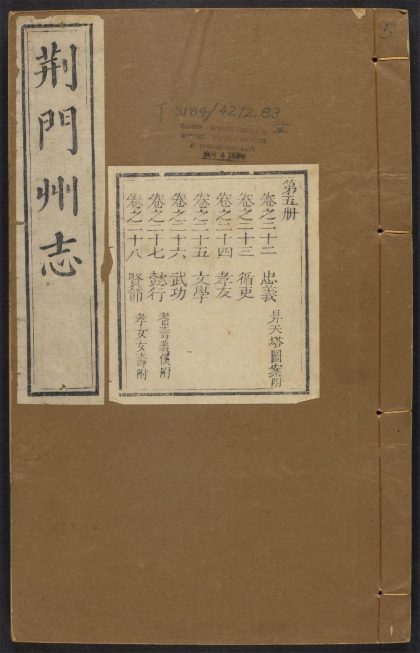 荆門州志
5
T 3184/4272.83
CHINESE-JAPANESE LIBRARY OF
HARVARD-YENCHING INSTITUTE
AT HARVARD UNIVERSITY
第五册
卷之二十二 忠義 昇天塔圖案附
卷之二十三 循吏
卷之二十四 孝友
卷之二十五 文學
卷之二十六 武功
卷之二十七 懿行 耆壽義僕附
卷之二十八 賢節 孝女女壽附